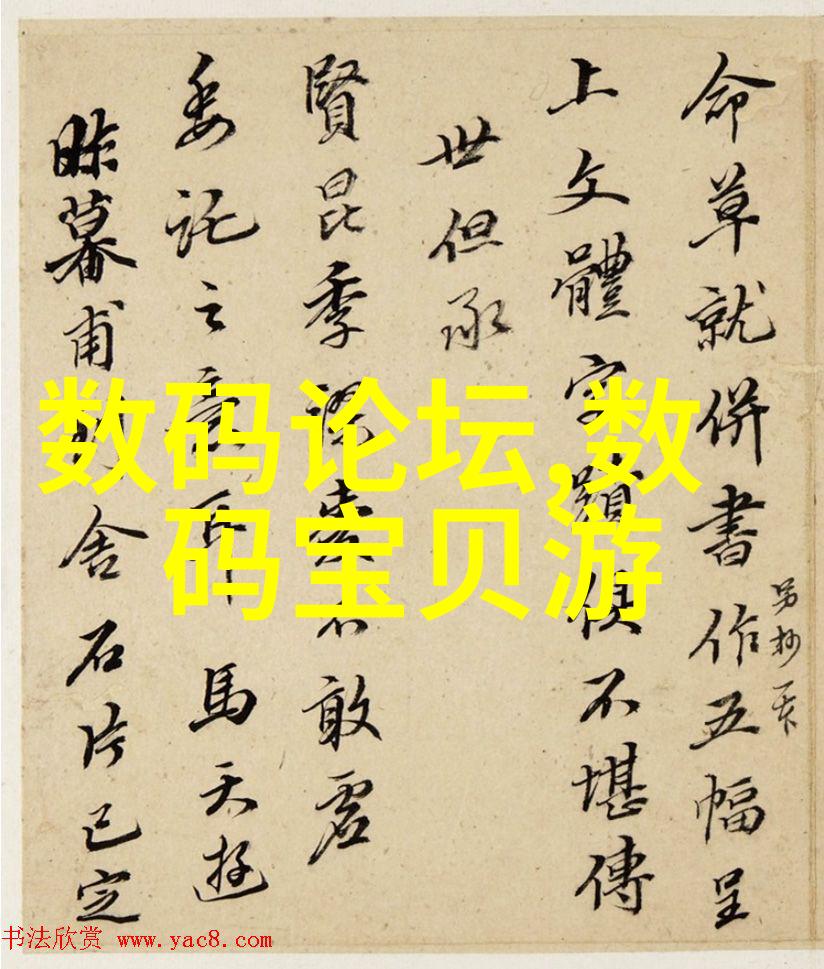 命草就併書作五幅呈
另抄一本
上文體字類俱不堪傳
世但承
賢昆季謬委不敢虛
委託之意耳馬天游
昨暮甫舍石片已定
数码论坛,数
码宝贝游
书法欣赏 www.yac8.com